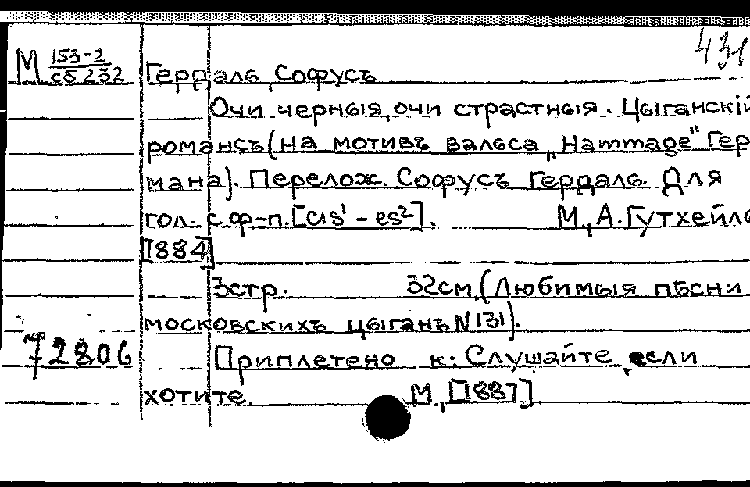 431
М 153-2
сб 232 Гердаль, Софусъ
Очи черныя, очи страстныя. Цыганскій
романсъ (на мотивъ вальса „Hammage" Гер
мана). Перелож. Софусъ Гердаль. Для
гол. с ф-п. [cis¹ - es²]. М., А. Гутхейль
[1884]
3стр. 32см. (Любимыя пѣсни
московскихъ цыганъ N 131).
72806 Приплетено к: Слушайте, если
хотите. М., [1887]